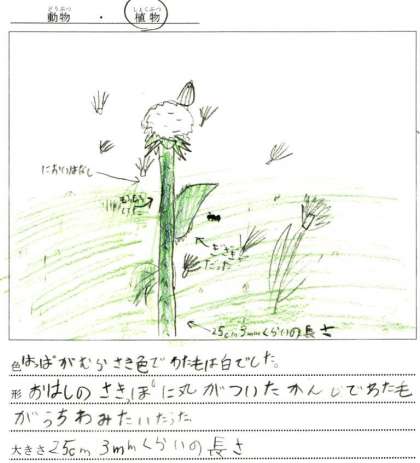 動物 ・ 植物
どうぶつ しょくぶつ
においはなし
25cm3mmくらいの長さ
色 はっぱがむらさき色でわた毛は白でした。
形 おはしのさきっぽに丸がついたかんじでわた毛
がうちわみたいだった
大きさ 25cm 3mmくらいの長さ